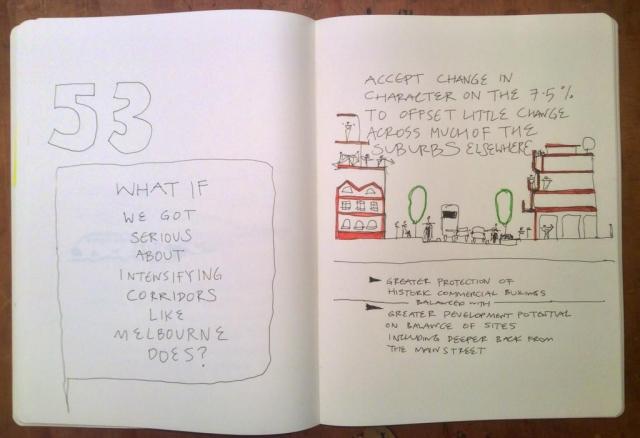 53
WHAT IF
WE GOT
SERIOUS
ABOUT
INTENSIFYING
CORRIDORS
LIKE
MELBOURNE
DOES?
ACCEPT CHANGE IN
CHARACTER ON THE 7.5%
TO OFFSET LITTLE CHANGE
ACROSS MUCH OF THE
SUBURBS ELSEWHERE
GREATER PROTECTION OF
HISTORIC COMMERCIAL BUILDINGS
BALANCED WITH
GREATER DEVELOPMENT POTENTIAL
ON BALANCE OF SITES
INCLUDING DEEPER BACK FROM
THE MAIN STREET